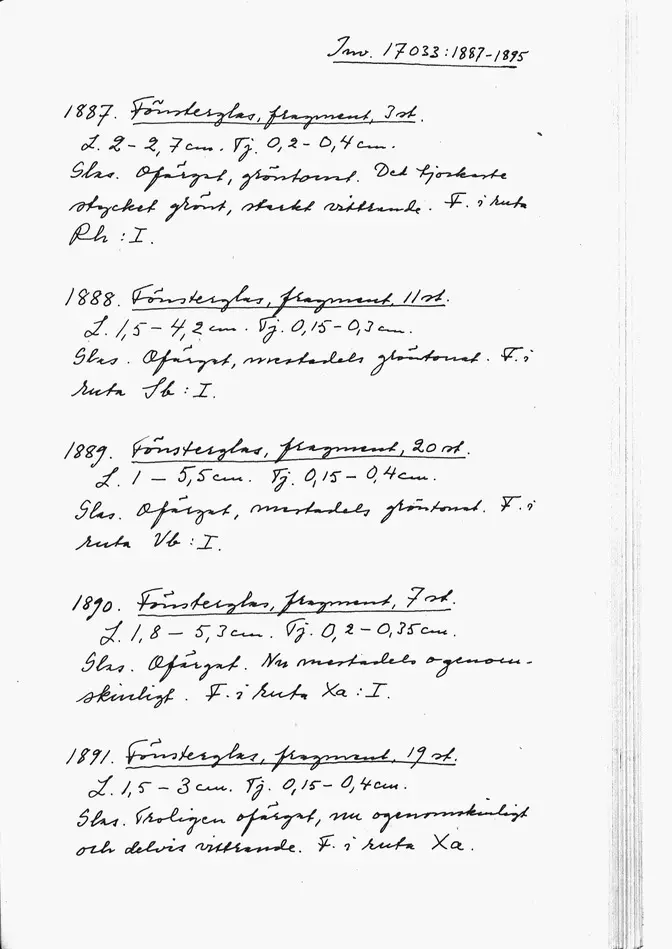 Inv. 17033:1887-1895
1887. Fönsterglas, fragment, 3 st.
L. 2 - 2,7 cm. Tj. 0,2 - 0,4 cm.
Glas. Ofärgat, gröntonat. Det tjockaste
stycket grönt, starkt vittrande. F. i ruta
Rh : I.
1888. Fönsterglas, fragment, 11 st.
L. 1,5 - 4,2 cm. Tj. 0,15 - 0,3 cm.
Glas. Ofärgat, mestadels gröntonat. F. i
ruta Sb : I.
1889. Fönsterglas, fragment, 20 st.
L. 1 - 5,5 cm. Tj. 0,15 - 0,4 cm.
Glas. Ofärgat, mestadels gröntonat. F. i
ruta Vb : I.
1890. Fönsterglas, fragment, 7 st.
L. 1,8 - 5,3 cm. Tj. 0,2 - 0,35 cm.
Glas. Ofärgat. Nu mestadels ogenom-
skinligt. F. i ruta Xa : I.
1891. Fönsterglas, fragment, 19 st.
L. 1,5 - 3 cm. Tj. 0,15 - 0,4 cm.
Glas. Troligen ofärgat, nu ogenomskinligt
och delvis vittrande. F. i ruta Xa.